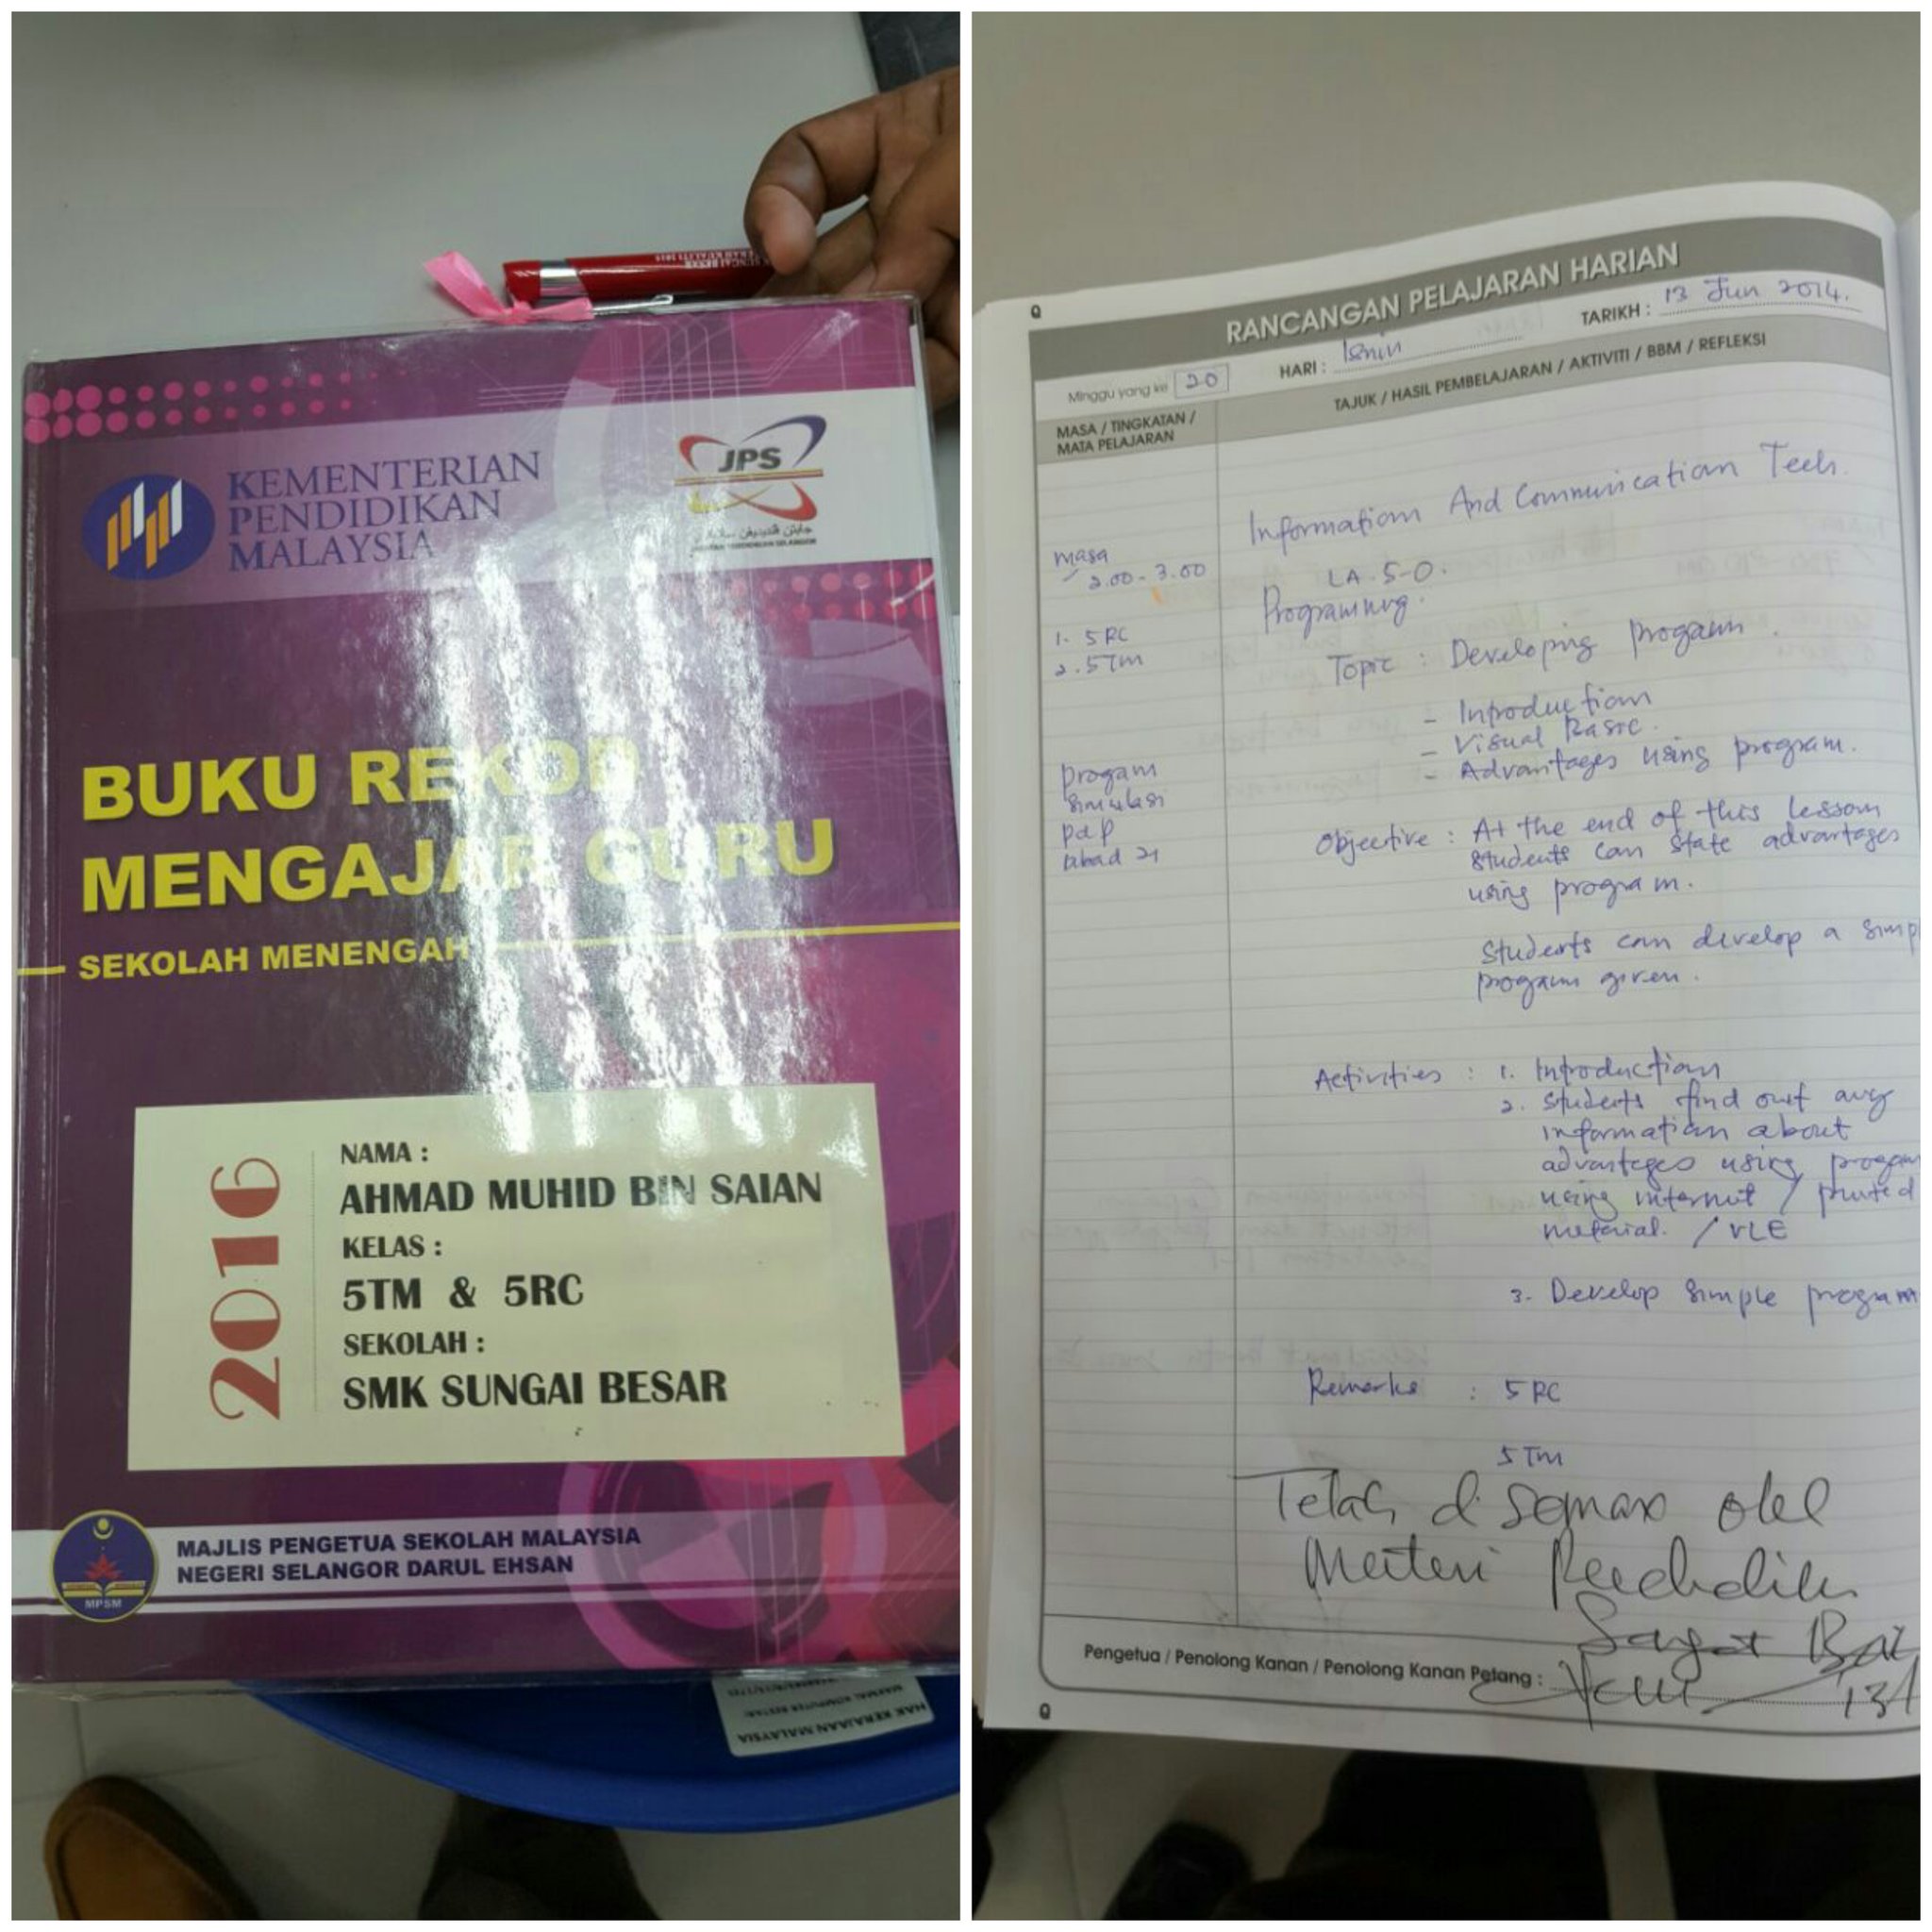 KEMENTERIAN
PENDIDIKAN
MALAYSIA
JPS
BUKU REKOD
MENGAJAR GURU
SEKOLAH MENENGAH
2016
NAMA :
AHMAD MUHID BIN SAIAN
KELAS :
5TM & 5RC
SEKOLAH :
SMK SUNGAI BESAR
MPSM
MAJLIS PENGETUA SEKOLAH MALAYSIA
NEGERI SELANGOR DARUL EHSAN
HAK KERAJAAN MALAYSIA
RANCANGAN PELAJARAN HARIAN
Minggu yang ke 20
HARI : Isnin
TARIKH : 13 Jun 2014.
MASA / TINGKATAN /
MATA PELAJARAN
TAJUK / HASIL PEMBELAJARAN / AKTIVITI / BBM / REFLEKSI
masa
2.00 - 3.00
1. 5RC
2. 5Tm
Progam
Simulasi
PdP
abad 21
Information And Communication Tech.
LA. 5-0.
Programming.
Topic : Developing progam.
- Introduction
- Visual Basic.
- Advantages using program.
Objective : At the end of this lesson
students can state advantages
using program.
Students can develop a simp
progam given.
Activities : 1. Introduction
2. Students find out any
information about
advantages using progam
using internet / printed
material. / VLE
3. Develop simple program
Remarks : 5 RC
5 Tm
Telah di semak oleh
Menteri Pendidikan
Pengetua / Penolong Kanan / Penolong Kanan Petang :